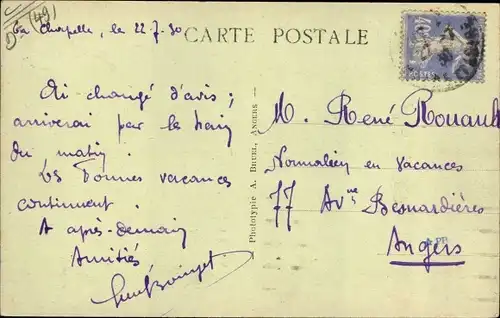 (49)
La Chapelle, le 22-7-30
CARTE POSTALE
Ai changé d'avis ;
arriverai par le train
du matin.
Les bonnes vacances
continuent.
A après-demain
Amitiés
Phototypie A. BRUEL, ANGERS
M. René Rouault
Normalien en vacances
77 Av^ue Besnardières
Angers
40c
POSTES